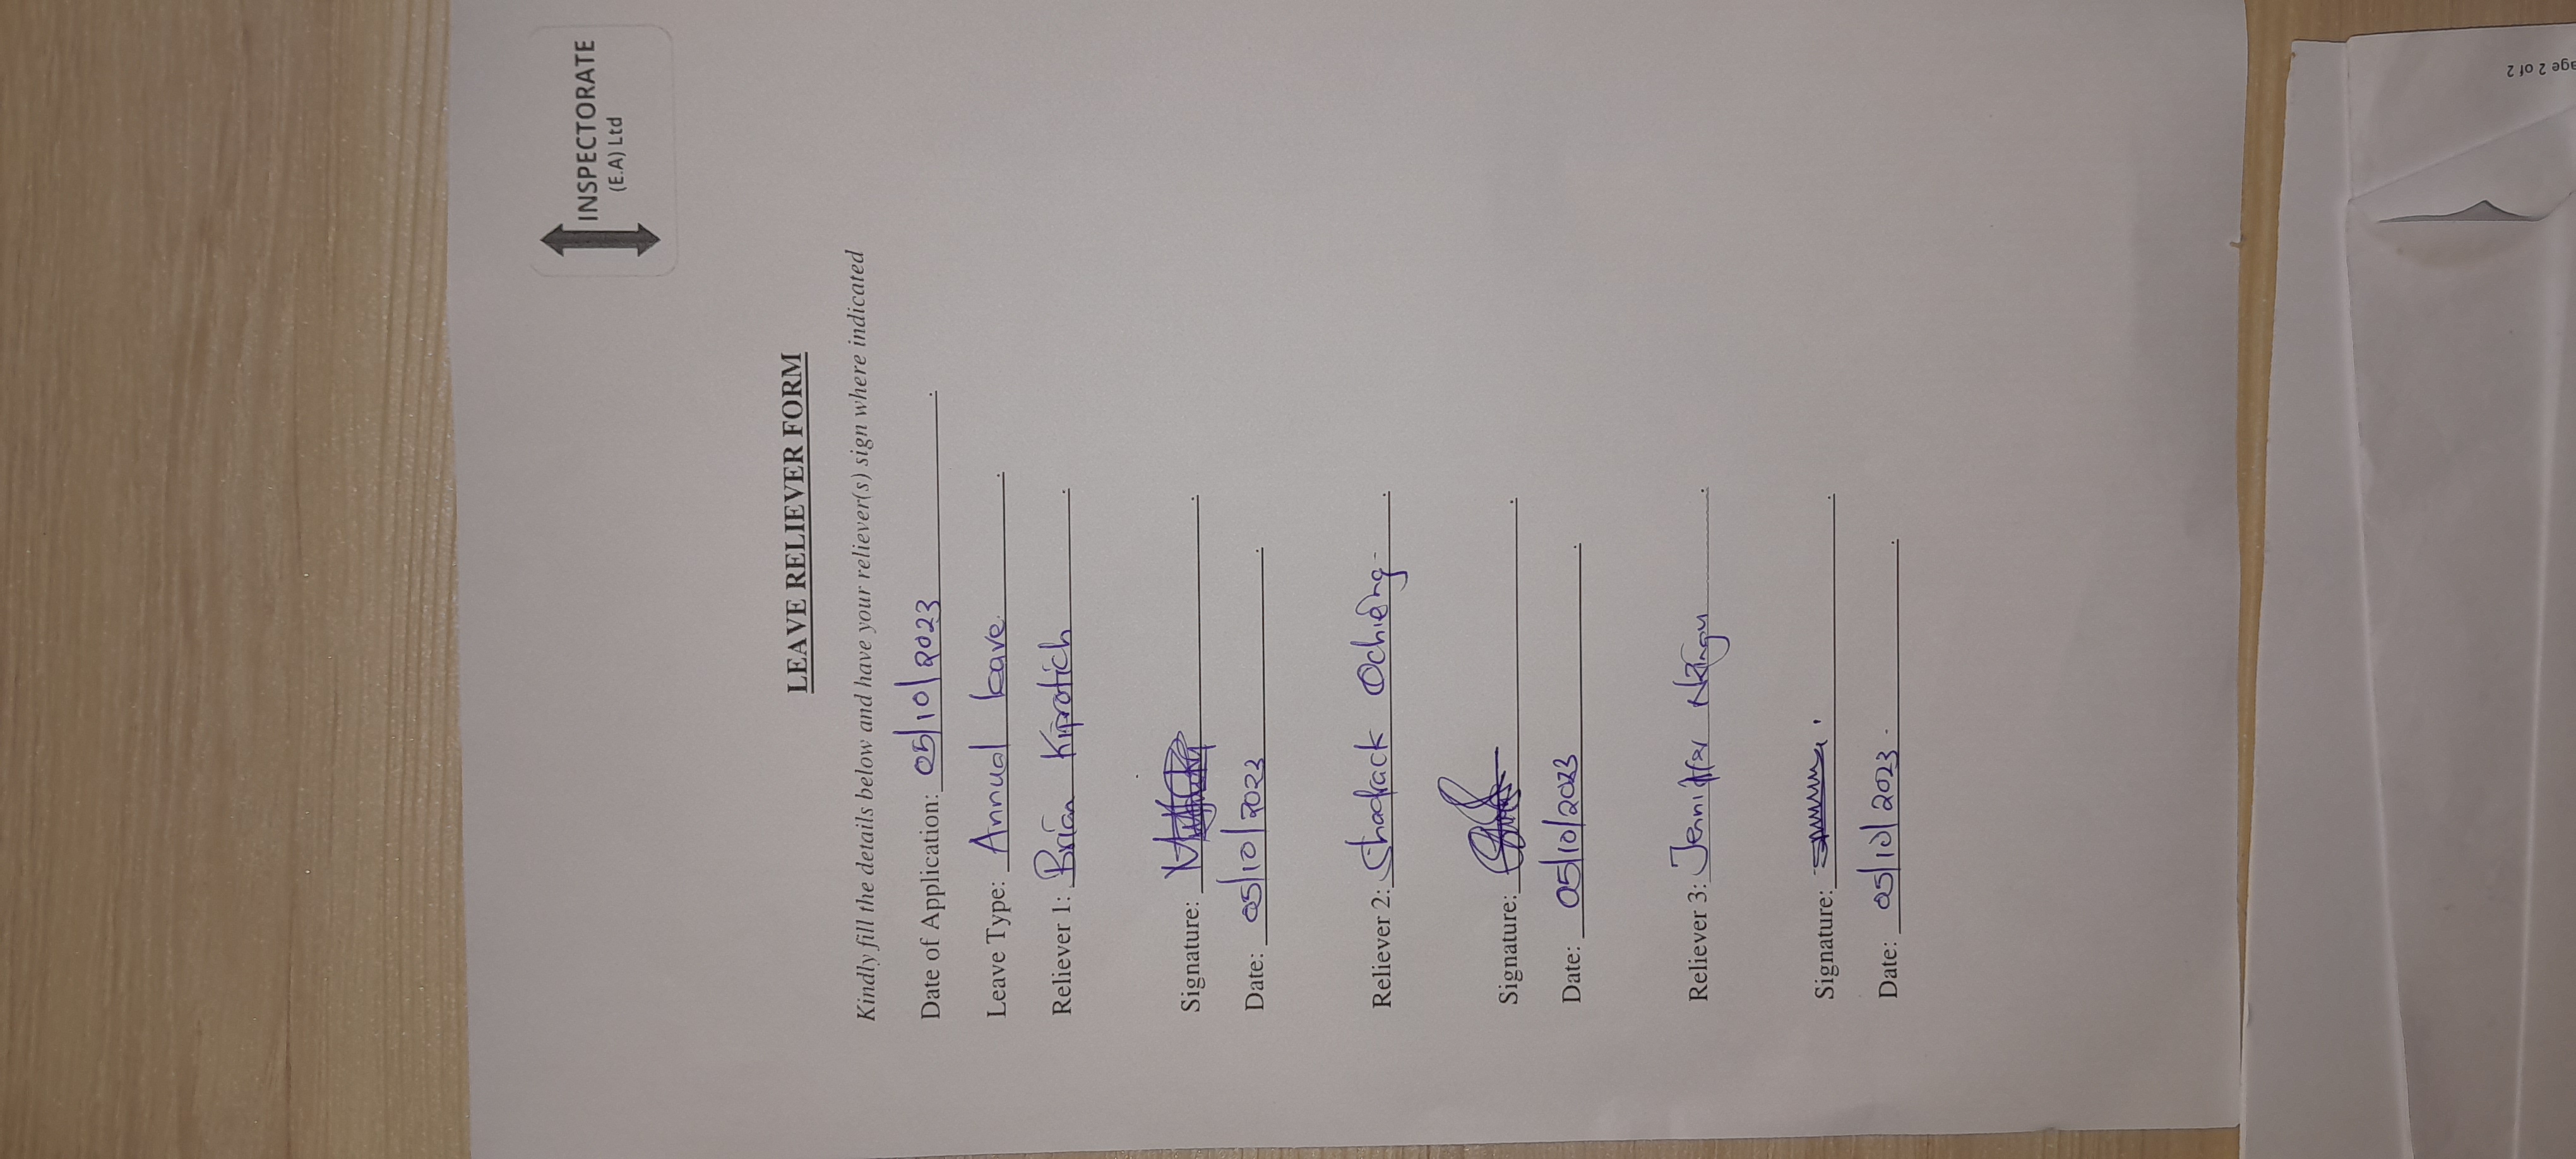 INSPECTORATE
(E.A) Ltd
LEAVE RELIEVER FORM
Kindly fill the details below and have your reliever(s) sign where indicated
Date of Application: 05/10/2023.
Leave Type: Annual leave.
Reliever 1: Brian Kiprotich.
Signature:
Date: 05/10/2023.
Reliever 2: Shadrack Ochieng.
Signature:
Date: 05/10/2023.
Reliever 3: Jenniffer
Signature:
Date: 05/10/2023.
age 2 of 2